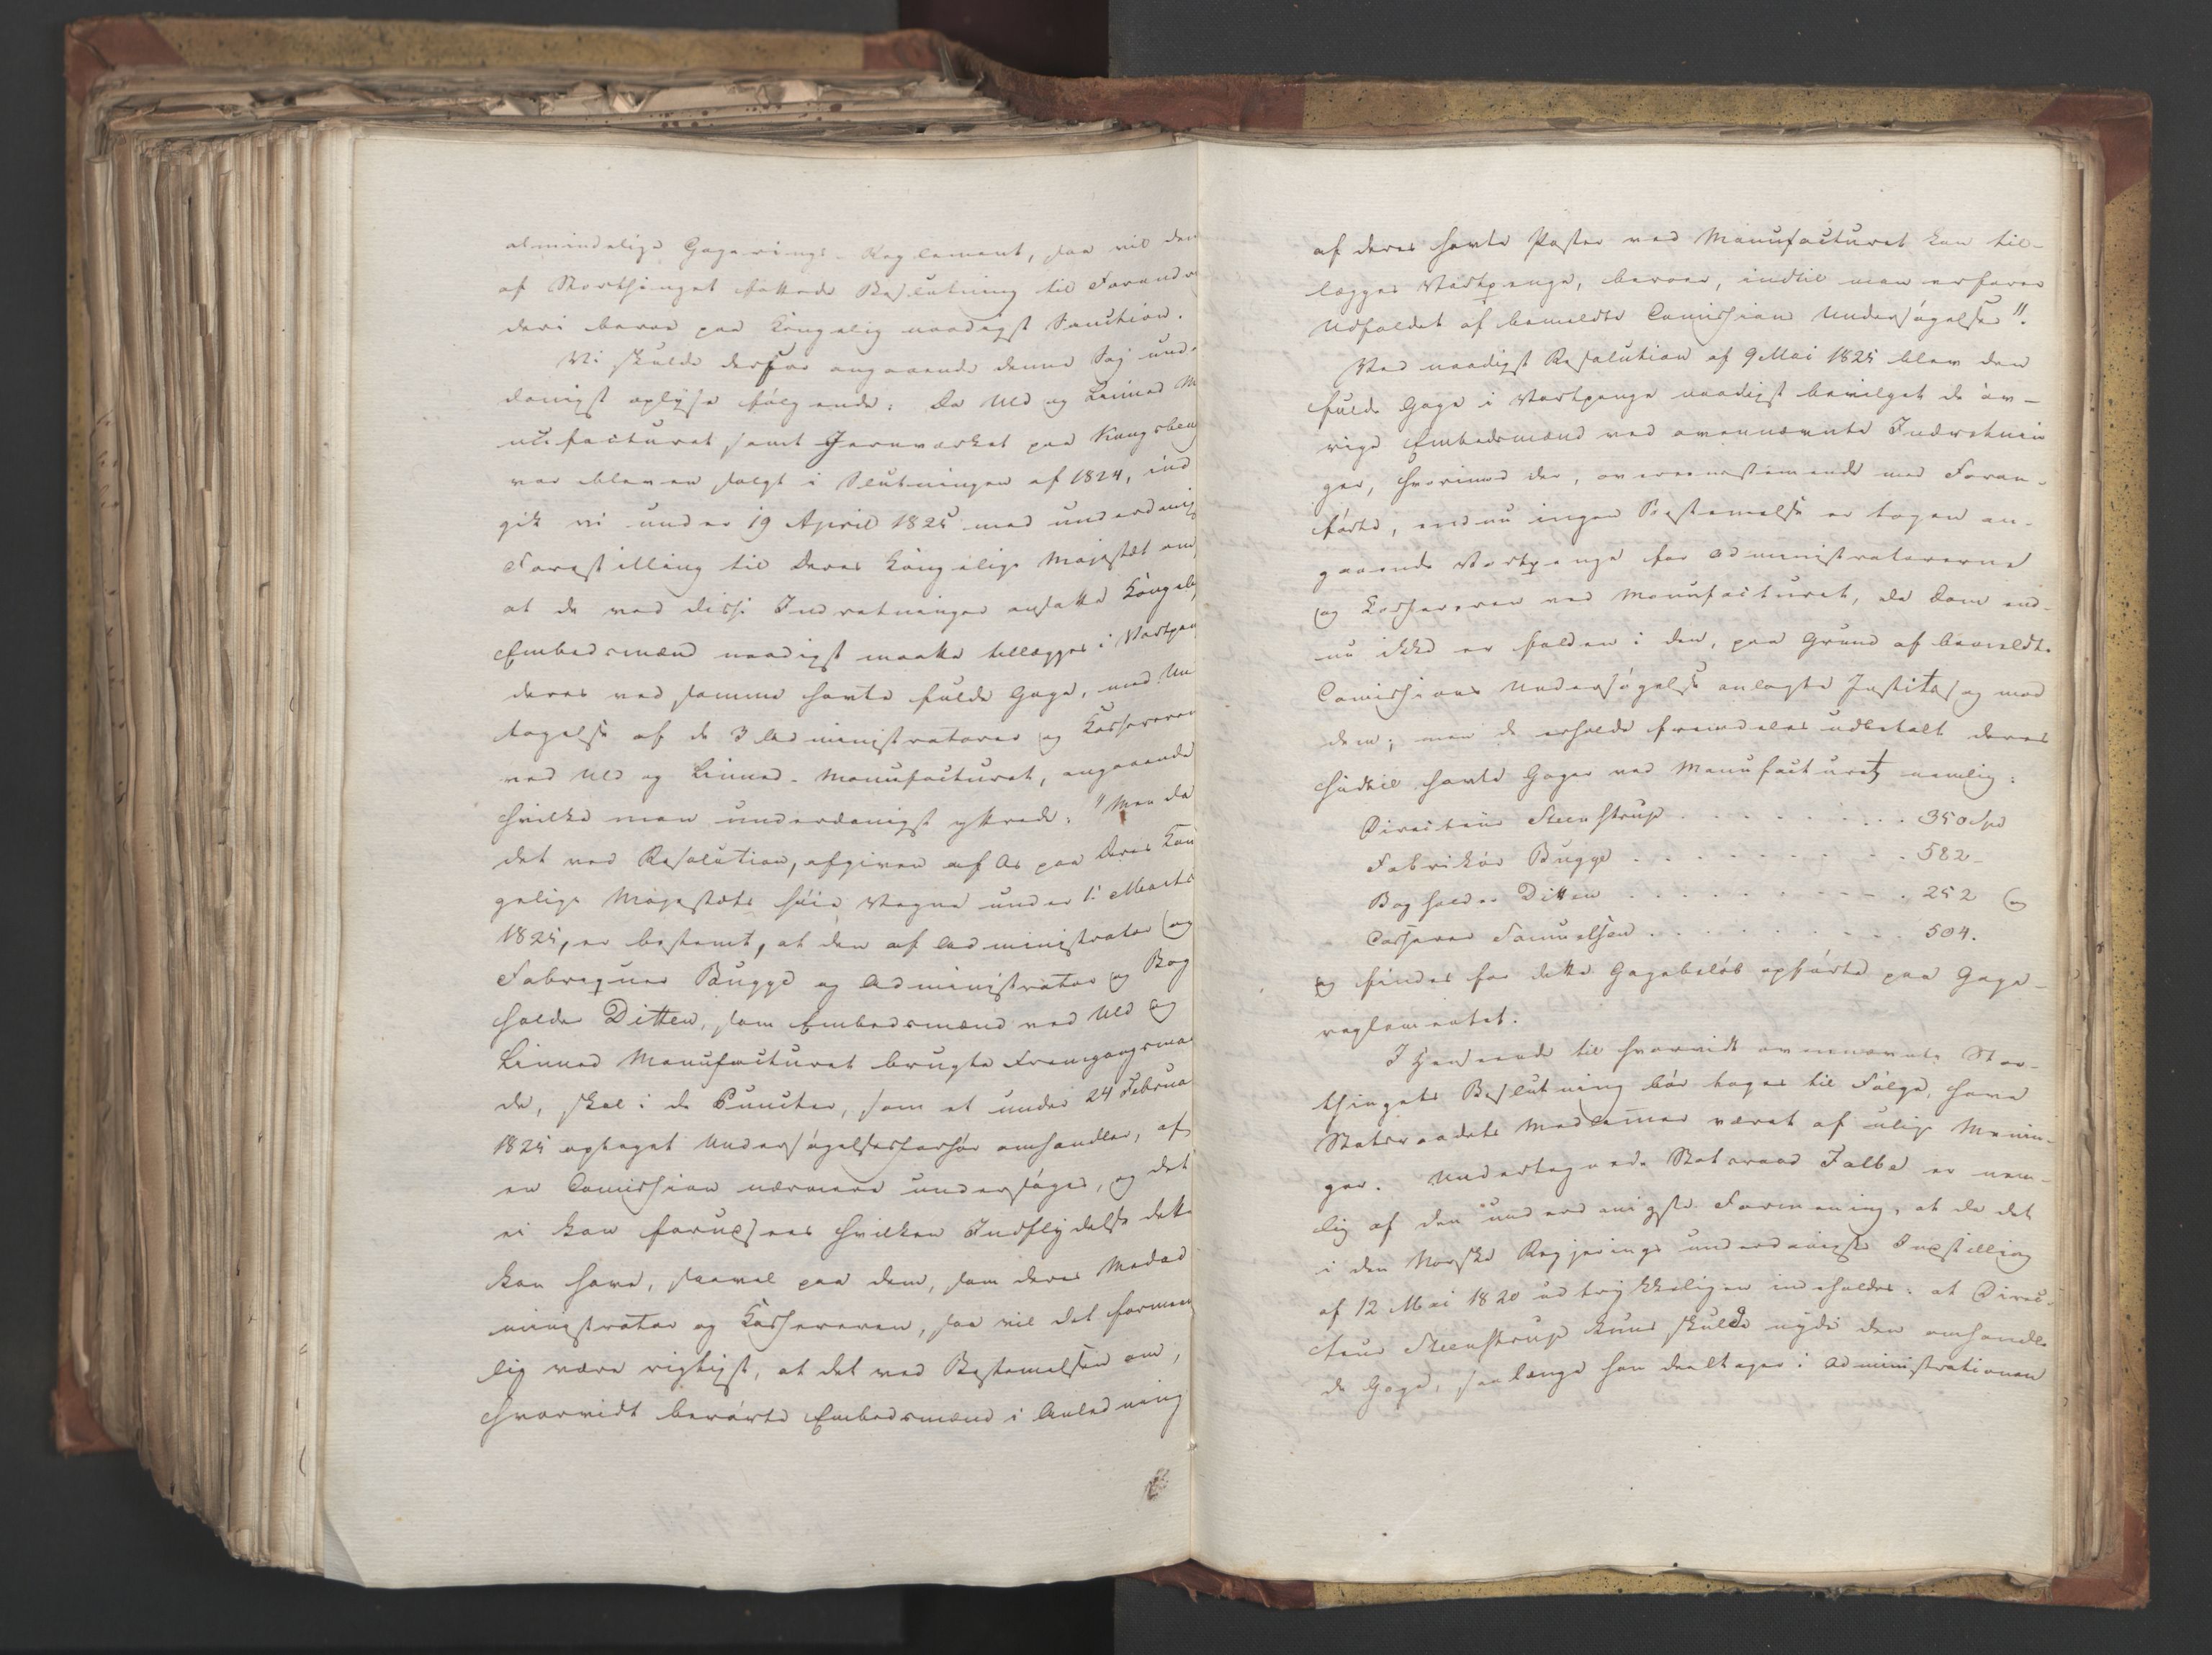 almindelige Gagerings-Reglement, saa vil den
af Storthinget fattede Beslutning til Forandr
deri beroe paa Kongelig naadigst Sanction.
Vi skulde derfor angaaende denne Sag und.
danigst oplyse følgende: Da Uld og Linned M
nufacturet, samt Jernværket paa Kongsberg
var bleven solgt i Slutningen af 1824, ind
gik vi under 19 April 1825 med underdanig
Forestilling til Deres Kongelige Majestæt om
at de ved disse Indretninger ansatte Kongel.
Embedsmænd naadigst maatte tillægges i Vartpen
deres ved samme havte fulde Gage, med Un
tagelse af de 3 Administratorer og Kassereren
ved Uld og Linned-Manufacturet, angaaende
hvilke man underdanigst yttrede: "Men da
det ved Resolution, afgiven af Os paa Deres Kon
gelige Majestæts høie Vegne under 1. Marts
1825, er bestemt, at den af Administrator og
Fabriqueur Bugge og Administrator og Bog
holder Ditten, som Embedsmænd ved Uld og
Linned Manufacturet brugte Fremgangsmaa
de, skal i de Puncter, som et under 24 Februa
1825 optaget Undersøgelsesforhør omhandler, af
en Comission nærmere undersøges, og det
ei kan forudsees hvilken Indflydelse dette
kan have, saavel paa dem, som deres Medad
ministrator og Kassereren, saa vil det formeen
lig være rigtigst, at det ved Bestemelsen om,
hvorvidt berørte Embedsmænd i Anledning
af deres havte Poster ved Manufacturet kan til-
lægges Vartpenge, beroer, indtil man erfarer
Udfaldet af bemeldte Comissions Undersøgelse".
Ved naadigst Resolution af 9 Mai 1825 blev den
fulde Gage i Vartpenge naadigst bevilget de øv-
rige Embedsmænd ved ovennævnte Indretnin
ger, hvorimod der, overeensstemende med Foran-
førte, endnu ingen Bestemelse er tagen an-
gaaende Vartpenge for Administratorerne
og Kassereren ved Manufacturet, da Dom end-
nu ikke er falden i den, paa Grund af bemeldte
Comissions Undersøgelse anlagte Justitssag mod
dem; men de erholde fremdeles udbetalt deres
hidtil havte Gager ved Manufacturet, nemlig:
Directeur Steenstrup . . . . . . . . . 350 Spd
Fabrikør Bugge . . . . . . . . . . 582-
Bogholder Ditten . . . . . . . . . . 252 og
Casserer Samuelsen . . . . . . . . . 504.
og findes for dette Gagebeløb opførte paa Gage-
reglementet.
I Henseende til hvorvidt ovennævnte Stor-
thingets Beslutning bør tages til Følge, have
Statsraadets Medlemer været af ulige Menin-
ger. Undertegnede Statsraad Falbe er nem-
lig af den underdanigste Formening, at da det
i den Norske Regjerings underdanigste Indstilling
af 12 Mai 1820 udtrykkeligen indeholdes: at Direc-
teur Steenstrup kuns skulde nyde den omhandle
de Gage, saalænge han deeltager i Administrationen